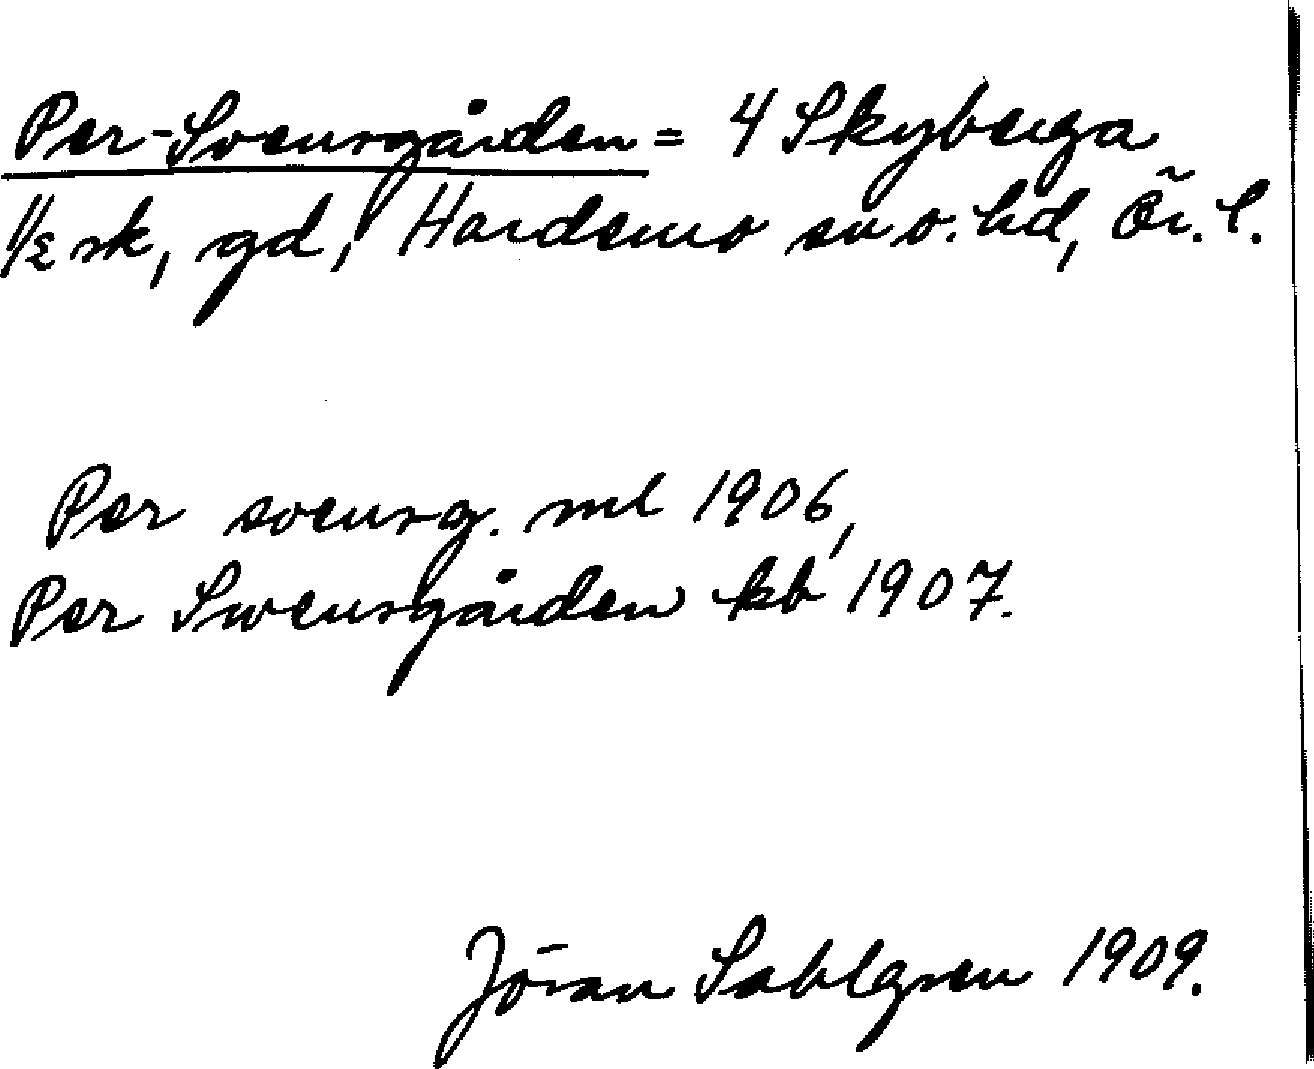 Per-Svensgården = 4 Skyberga
1/2 sk, gd, Hardemo sn o. hd, Ör. l.
Per svensg. ml 1906,
Per Swensgården kb 1907.
Jöran Sahlgren 1909.